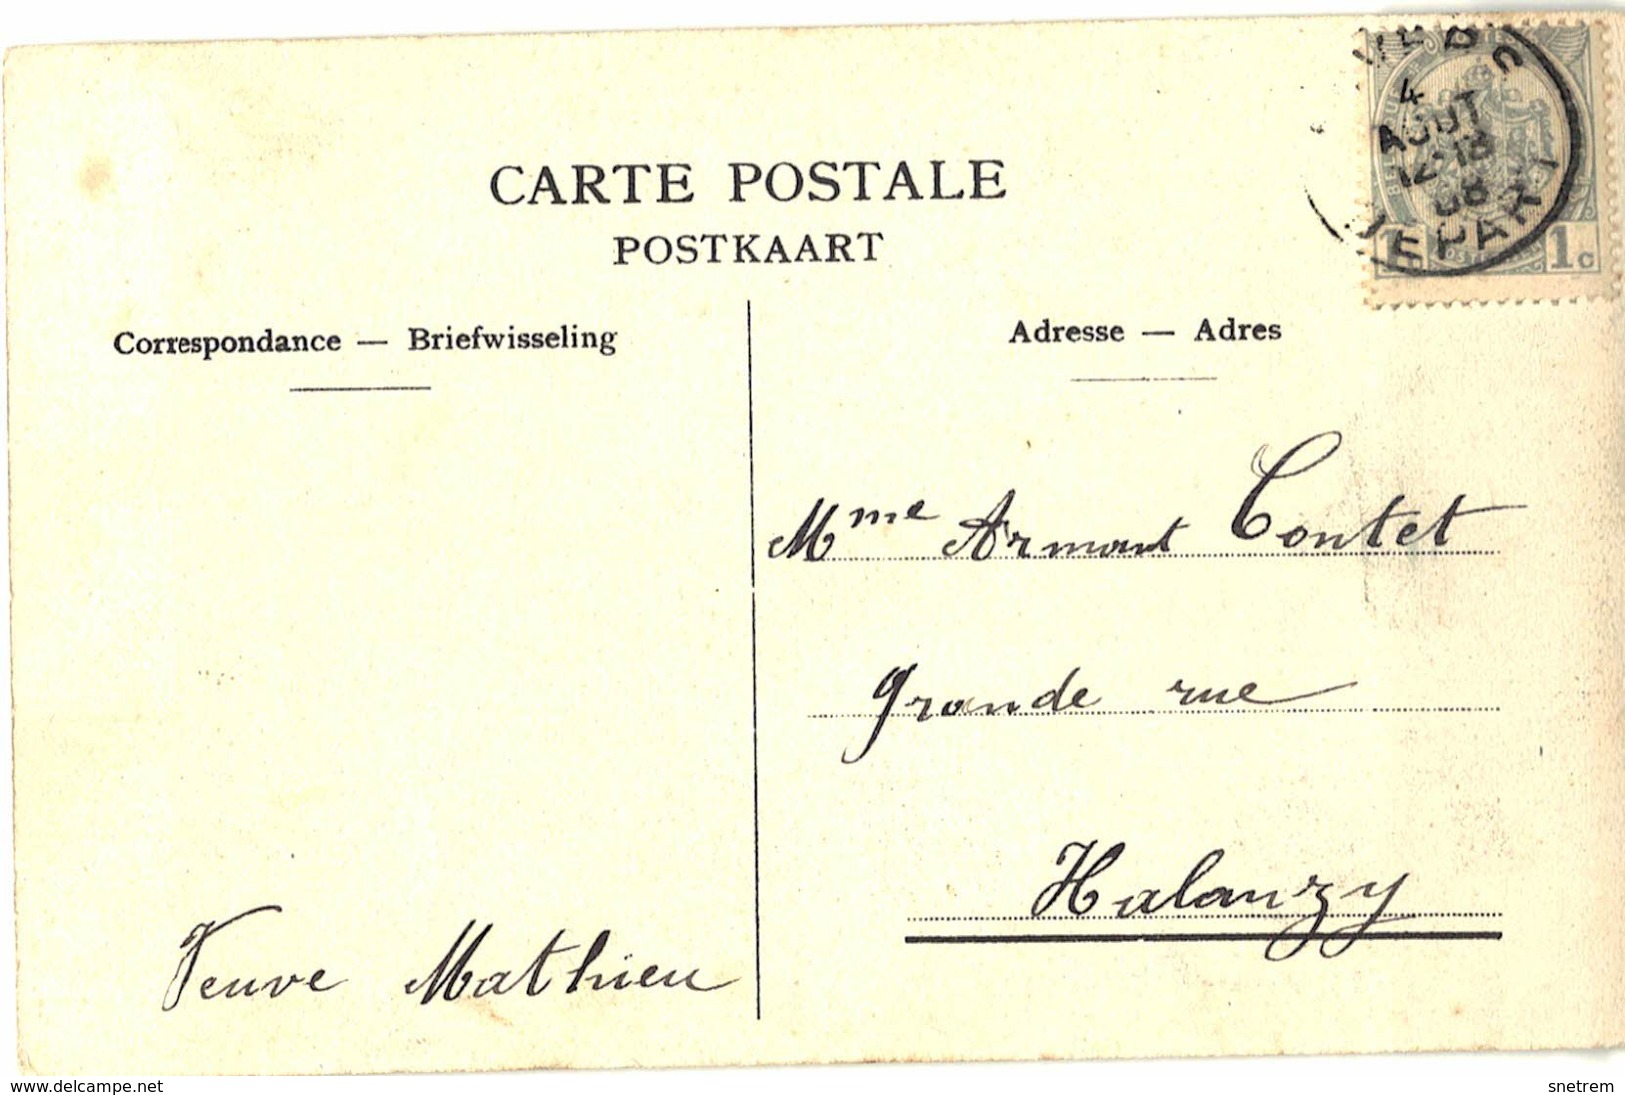 CARTE POSTALE
POSTKAART
Correspondance — Briefwisseling
Adresse — Adres
4
AOUT
12-13
08
DEPART
1c
Mme Armant Contet
Grande rue
Halanzy
Veuve Mathieu
www.delcampe.net
snetrem